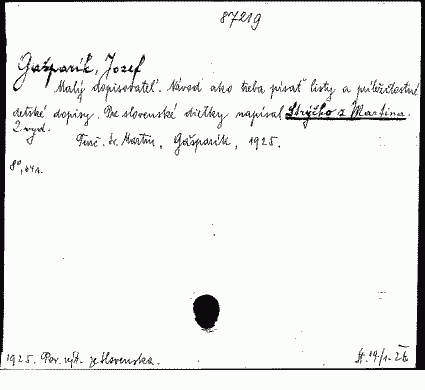 87219
Gašparík, Jozef
Malý dopisovateľ. Návod ako treba písať listy a príležitostné
detské dopisy. Pre slovenské dietky napísal Strýčko z Martina.
2. vyd.
Turč. Sv. Martin, Gašparík, 1925.
8°, 64 s.
1925. Pov. výt. ze Slovenska.
19/1-26